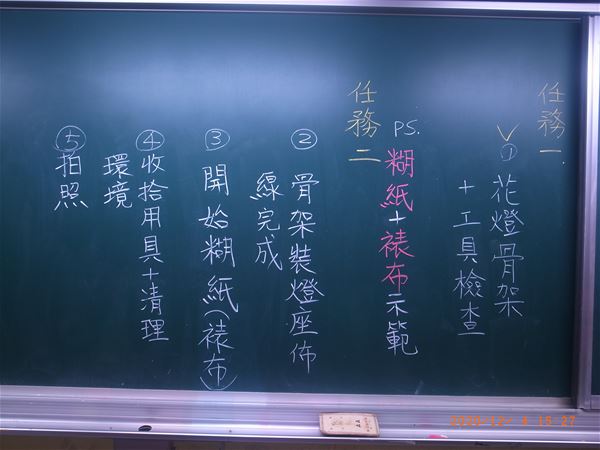 任務一
①花燈骨架
+工具檢查
PS.糊紙+裱布示範
任務二
②骨架裝燈座佈
線完成
③開始糊紙(裱布)
④收拾用具+清理
環境
⑤拍照